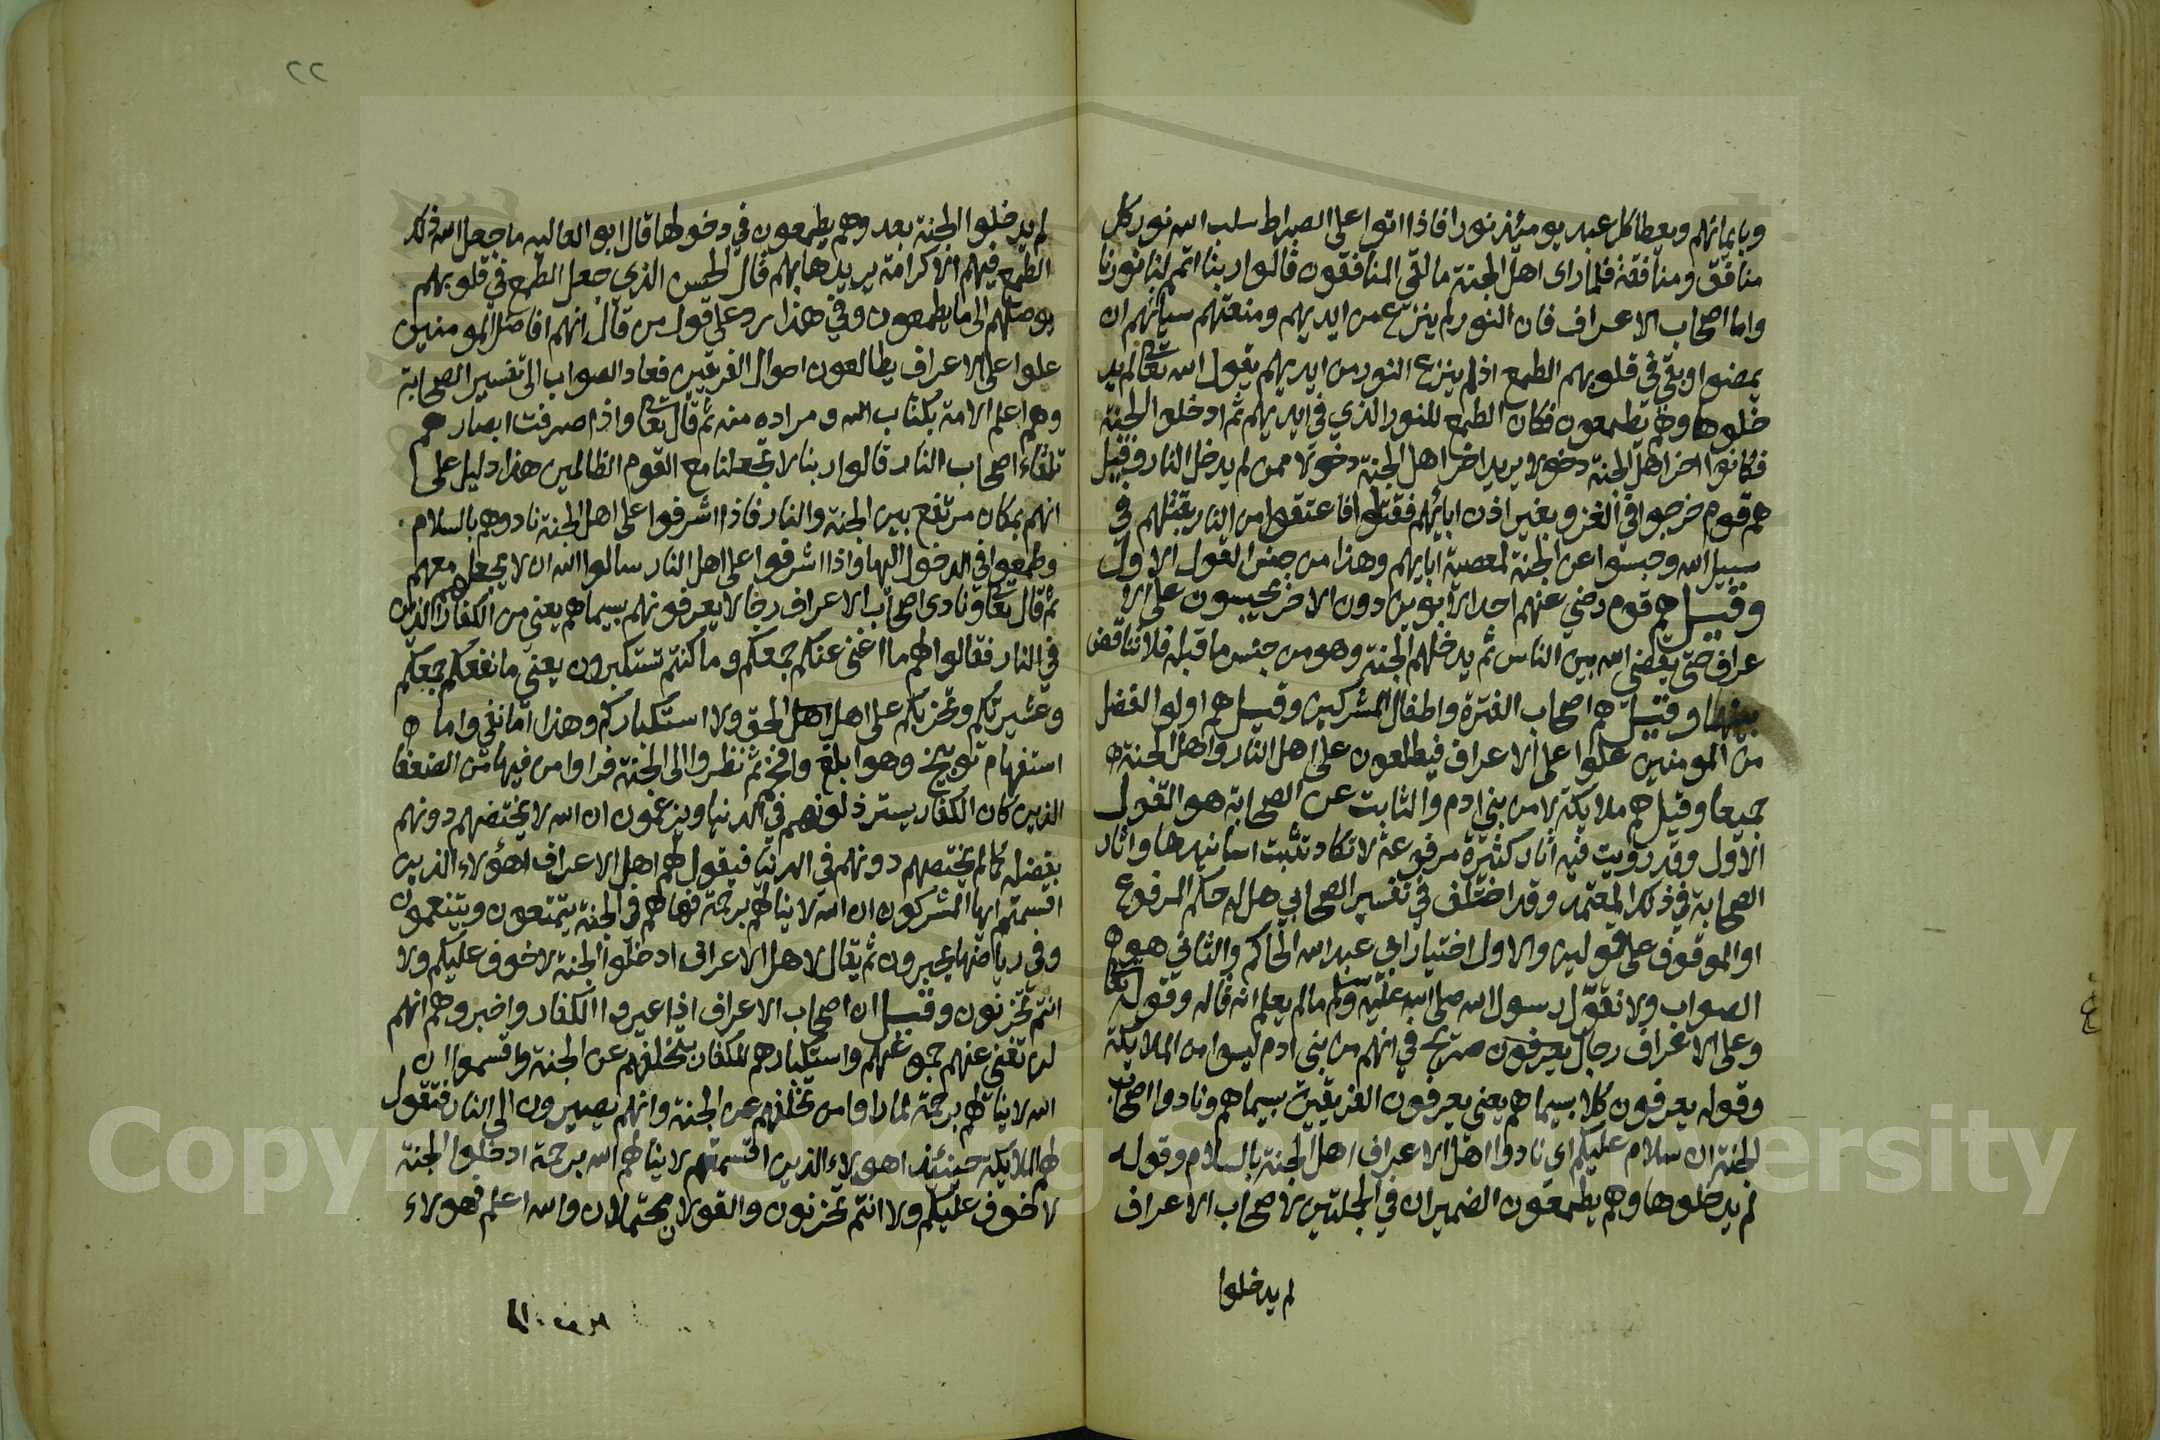 وبايمانهم ويعطا كل عبد يومئذ نورا فاذا اتوا على الصراط سلب الله نور كل
منافق ومنافقة فلما راى اهل الجنة ما لقي المنافقون قالوا ربنا اتمم لنا نورنا
واما اصحاب الاعراف فان النور لم ينزع عن ايديهم ومنعتهم سيآتهم ان
يمضوا وبقي في قلوبهم الطمع اذ لم ينزع النور من ايديهم يقول الله تعالى لم يد
خلوها وهم يطمعون فكان الطمع للنور الذي في ايديهم ثم ادخلوا الجنة
فكانوا اخر اهل الجنة دخولا يريد اخر اهل الجنة دخولا ممن لم يدخل النار وقيل
هم قوم خرجوا في الغزو بغير اذن ابائهم فقتلوا فاعتقوا من النار بقتلهم في
سبيل الله وحبسوا عن الجنة لمعصية ابايهم وهذا من جنس القول الاول
وقيل هم قوم رضي عنهم احد الابوين دون الاخر يحبسون على الا
عراف حتى يقضي الله بين الناس ثم يدخلهم الجنة وهو من جنس ما قبله فلا تناقض
بينهما وقيل هم اصحاب الفترة واطفال المشركين وقيل هم اولوا الفضل
من المومنين علوا على الاعراف فيطلعون على اهل النار واهل الجنة ه
جميعا وقيل هم ملايكة لا من بني ادم والثابت عن الصحابة هو القول
الاول وقد رويت فيه اثار كثيرة مرفوعة لا تكاد تثبت اسانيدها واثار
الصحابة في ذلك المعتمد وقد اختلف في تفسير الصحابي هل له حكم المرفوع
او الموقوف على قولين والاول اختيار ابي عبد الله الحاكم والثاني هو ه
الصواب ولا نقول رسول الله صلى الله عليه وسلم ما لم يعلم انه قاله وقوله تعالى
وعلى الاعراف رجال يعرفون صريح في انهم من بني ادم ليسوا من الملايكة
وقوله يعرفون كلا بسيماهم يعني يعرفون الفريقين بسيماهم ونادوا اصحاب
الجنة ان سلام عليكم اي نادوا اهل الاعراف اهل الجنة بالسلام وقوله
لم يدخلوها وهم يطمعون الضميران في الجملتين لاصحاب الاعراف
لم يدخلوا
٢٢
لم يدخلوا الجنة بعد وهم يطمعون في دخولها قال ابو العاليه ما جعل الله ذلك
الطمع فيهم الا كرامة يريدها بهم قال الحسن الذي جعل الطمع في قلوبهم
يوصلهم الى ما يطمعون وفي هذا رد على قول من قال انهم افاضل المومنين
علوا على الاعراف يطالعون احوال الفريقين فعاد الصواب الى تفسير الصحابة
وهم اعلم الامة بكتاب الله ومراده منه ثم قال تعالى واذا صرفت ابصارهم
تلقاء اصحاب النار قالوا ربنا لا تجعلنا مع القوم الظالمين هذا دليل على
انهم بمكان مرتفع بين الجنة والنار فاذا اشرفوا على اهل الجنة نادوهم بالسلام
وطمعوا في الدخول اليها واذا اشرفوا على اهل النار سالوا الله ان لا يجعلهم معهم
ثم قال تعالى ونادى اصحاب الاعراف رجالا يعرفونهم بسيماهم يعني من الكفار الذين
في النار فقالوا لهم ما اغنى عنكم جمعكم وما كنتم تستكبرون يعني ما نفعكم جمعكم
وعشيرتكم وتحزبكم على اهل اهل الحق ولا استكباركم وهذا اما نفي واما ه
استفهام توبيخ وهو ابلغ وافخم ثم نظروا الى الجنة فراوا من فيها من الضعفا
الذين كان الكفار يسترذلونهم في الدنيا ويزعمون ان الله لا يختصهم دونهم
بفضله كما لم يختصهم دونهم في الدنيا فيقول لهم اهل الاعراف اهؤلاء الذين
اقسمتم ايها المشركون ان الله لا ينالهم برحمة فهاهم في الجنة يتمتعون ويتنعمون
وفي رياضها يحبرون ثم يقال لاهل الاعراف ادخلوا الجنة لا خوف عليكم ولا
انتم تحزنون وقيل ان اصحاب الاعراف اذا عيروا الكفار واخبروهم انهم
لم تغني عنهم جموعهم واستكبارهم الكفار بتخلفهم عن الجنة واقسموا ان
الله لا ينالهم برحمة لما راوا من تخلفهم عن الجنة وانهم يصيرون الى النار فتقول
لهم الملايكة حينئذ اهولاء الذين اقسمتم لا ينالهم الله برحمة ادخلوا الجنة
لا خوف عليكم ولا انتم تحزنون والقولان محتملان والله اعلم فهولاء
Copyright © King Saud University